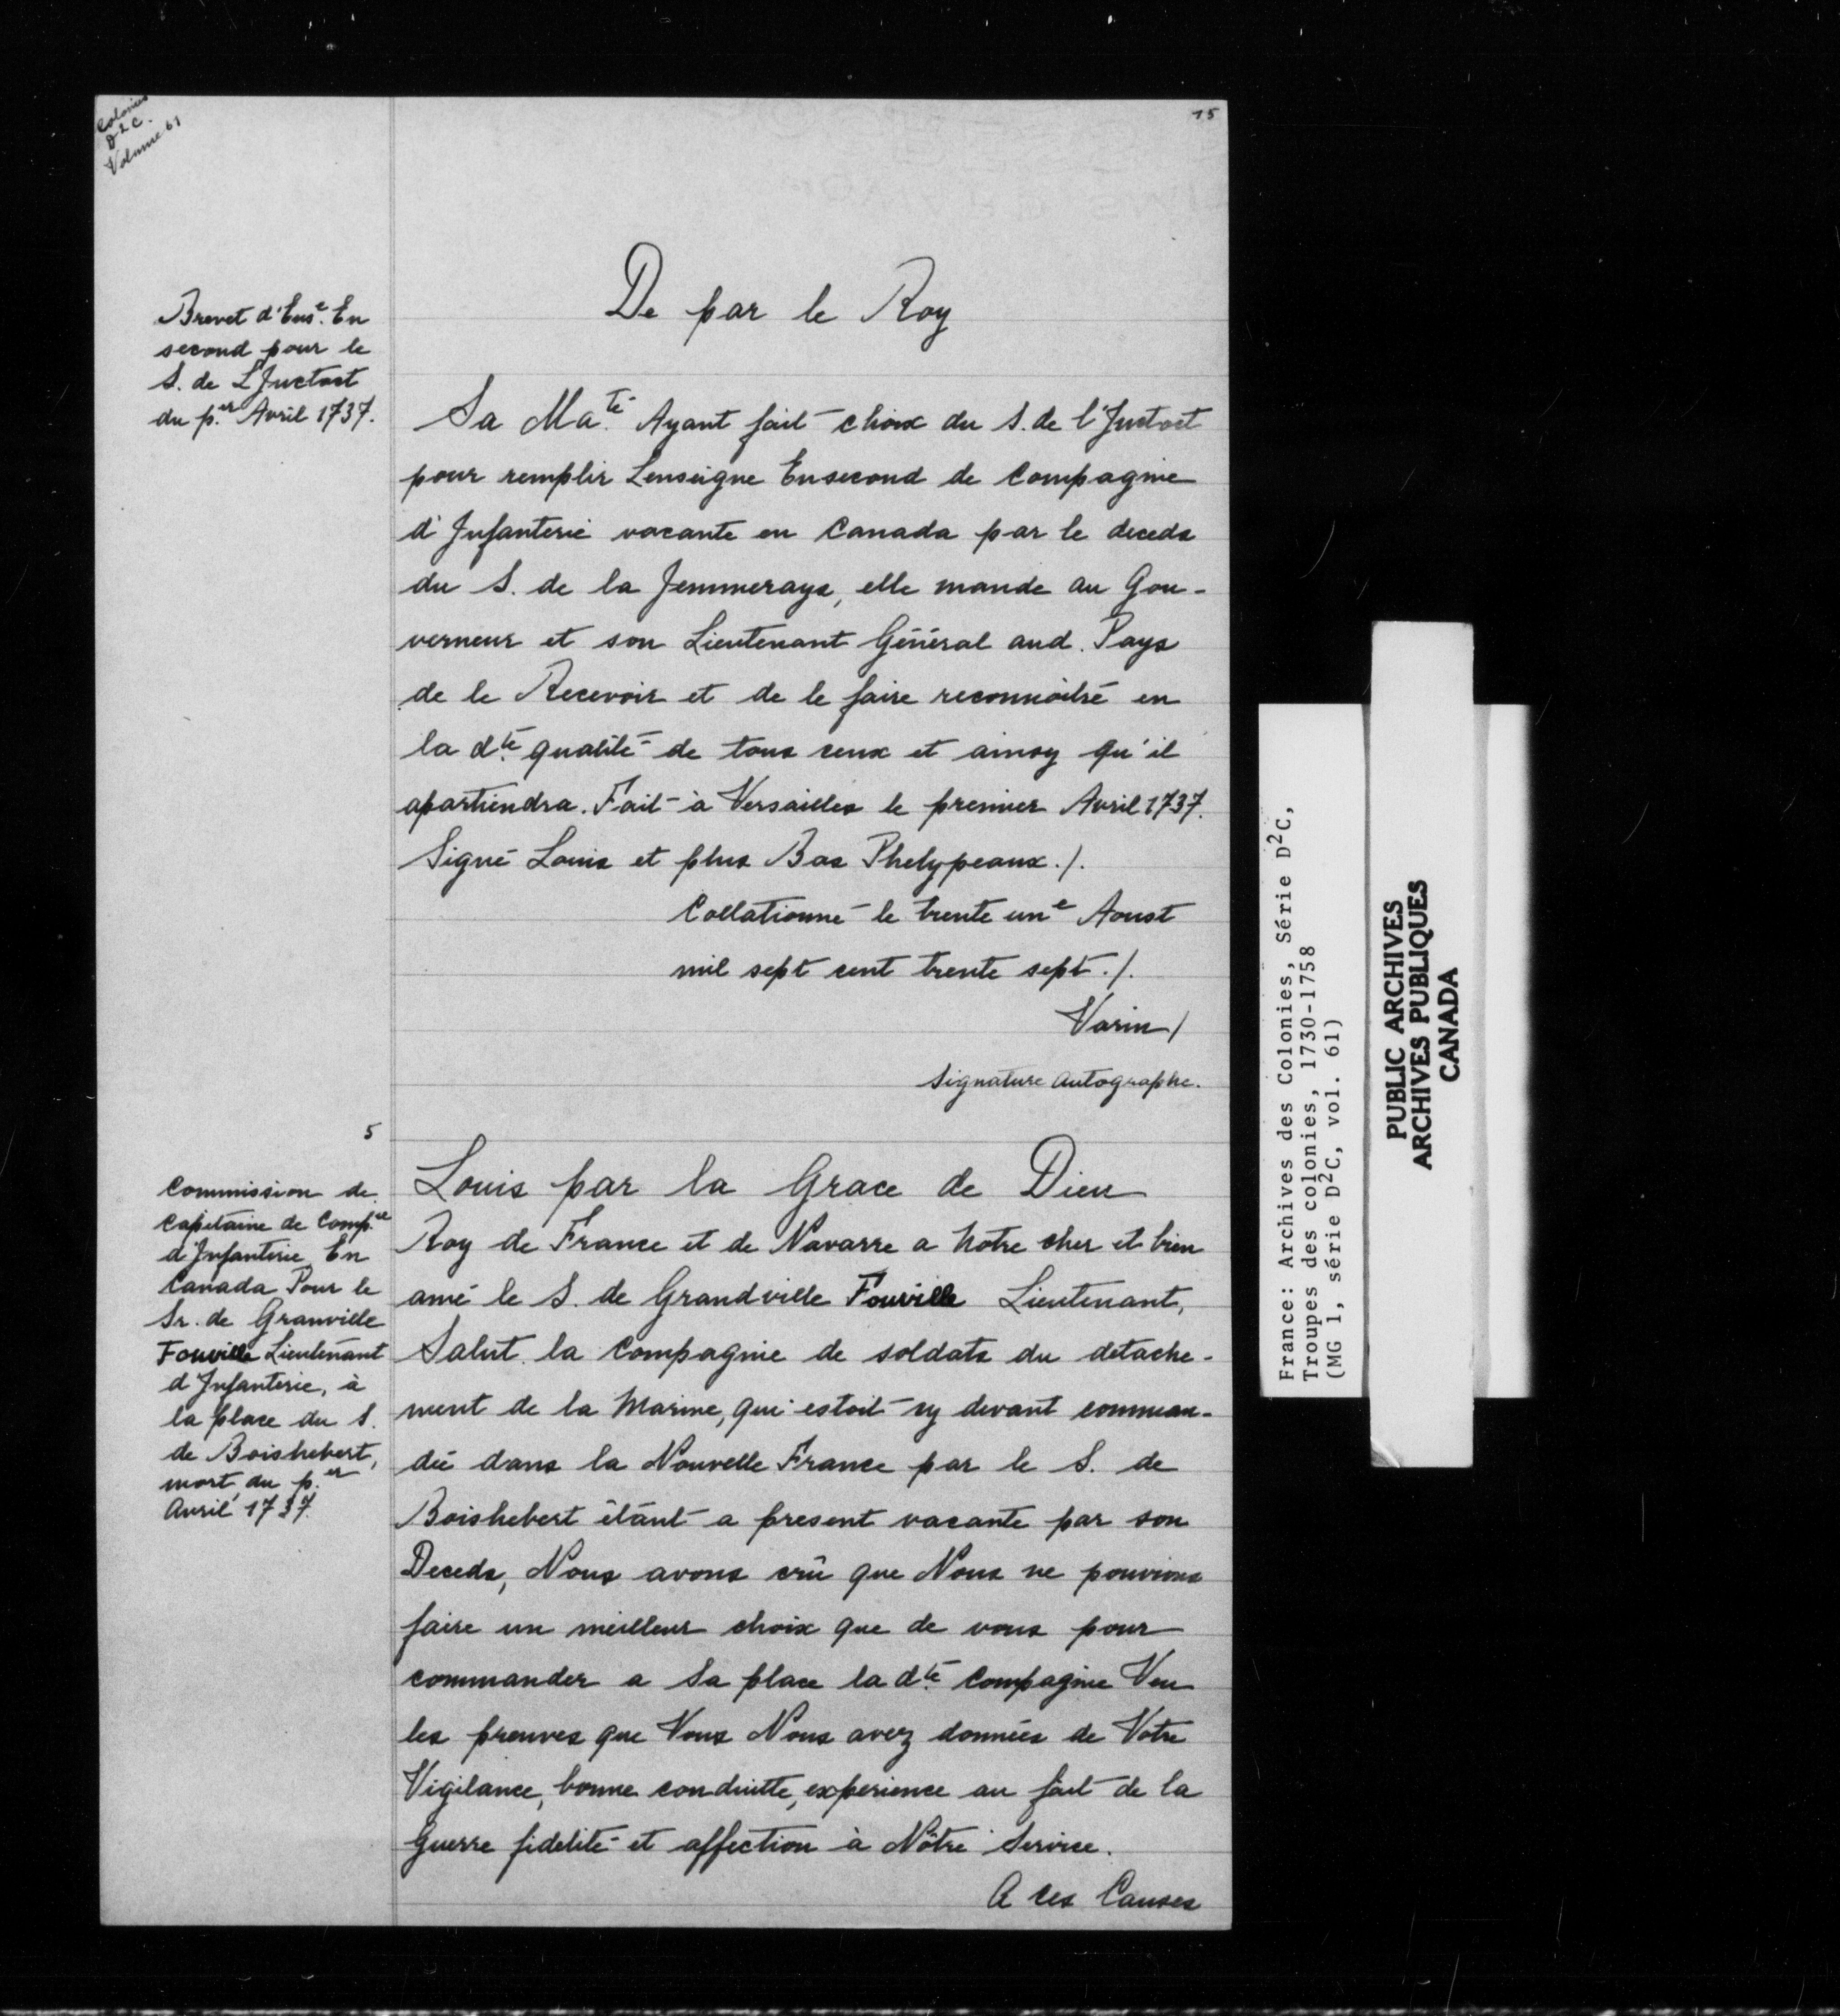 Colonies
D2C.
Volume 61
15
De par le Roy
Brevet d'Ense. En
second pour le
S. de L'Juctost
du p.er Avril 1737.
Sa Ma.té Ayant fait choix du S. de l'Juctost
pour remplir Lenseigne Ensecond de Compagnie
d'Infanterie vacante en Canada par le deceds
du S. de la Jemmeraye, elle mande au Gou-
verneur et son Lieutenant Général aud. Pays
de le Recevoir et de le faire reconnoitre en
la d.te qualité de tous ceux et ainsy qu'il
apartiendra. Fait à Versailles le premier Avril 1737.
Signé Louis et plus Bas Phelypeaux ./.
Collationné le trente une Aoust
mil sept cent trente sept ./.
Varin/
Signature Autographe.
5
Commission de
Capitaine de Comp.ie
d'Infanterie En
Canada Pour le
Sr. de Granville
Fouville Lieutenant
d'Infanterie, à
la place du S.
de Boishebert,
mort, du p.er
Avril 1737.
Louis par la Grace de Dieu
Roy de France et de Navarre a Notre cher et bien
amé le S. de Grandville Fouville Lieutenant,
Salut. la Compagnie de soldats du detache-
ment de la Marine, qui estoit cy devant comman-
dée dans la Nouvelle France par le S. de
Boishebert étant a present vacante par son
Deceds, Nous avons crû que Nous ne pouvions
faire un meilleur choix que de vous pour
commander a Sa place la d.te Compagnie Veu
les preuves que Vous Nous avez données de Votre
Vigilance, bonne conduitte, experience au fait de la
Guerre fidelité et affection à Nôtre Service.
A ces Causes
France: Archives des Colonies, Série D2C,
Troupes des colonies, 1730-1758
(MG 1, série D2C, vol. 61)
PUBLIC ARCHIVES
ARCHIVES PUBLIQUES
CANADA